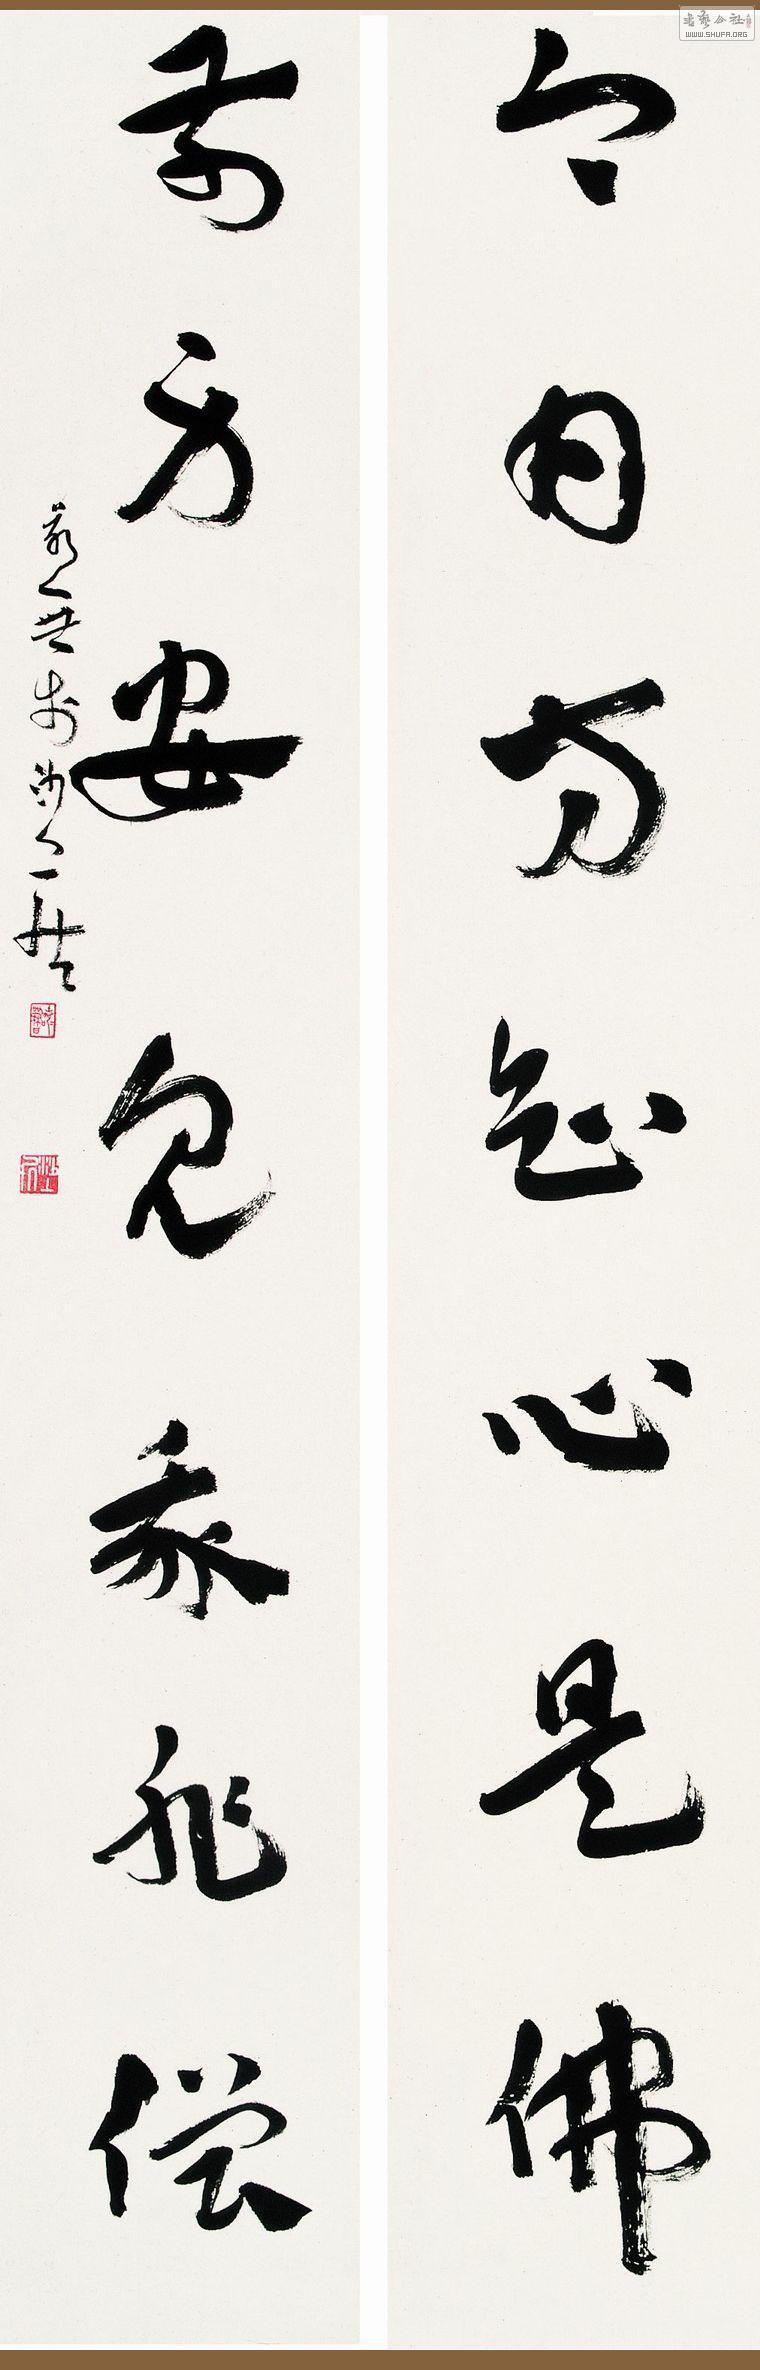 書藝公社
WWW.SHUFA.ORG
今日方知心是佛
前身安見我非僧